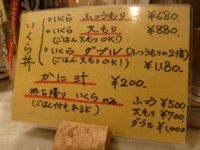 いくら丼
○いくら ふつうもり ¥680.
○いくら 大もり ¥880.
(ごはん 大もりOK!)
○いくら ダブル (ふつうもりの2倍)
(ごはん 大もりOK!) ¥1,180.
かに汁 ¥200.
持ち帰り いくらのみ ふつう ¥500
(ごはん付もあるよ) 大もり ¥700
ダブル ¥1,000